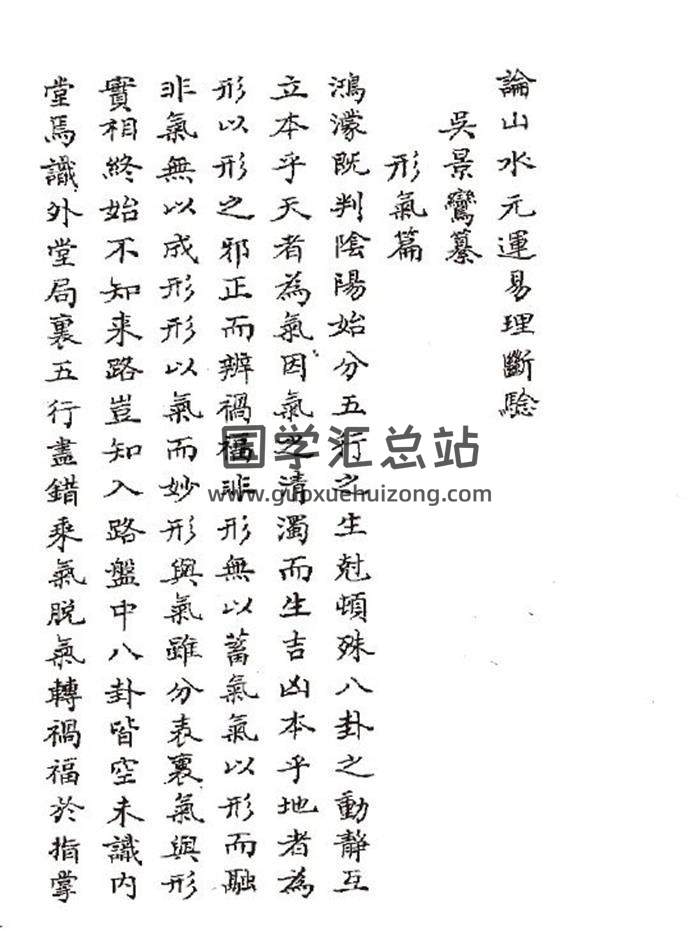 論山水元運易理斷驗
吳景鸞纂
形氣篇
鴻濛既判陰陽始分五行之生尅頓殊八卦之動靜互
立本乎天者為氣因氣之清濁而生吉凶本乎地者為
形以形之邪正而辨禍福非形無以蓄氣氣以形而融
非氣無以成形形以氣而妙形與氣雖分表裏氣與形
實相終始不知来路豈知入路盤中八卦皆空未識内
堂焉識外堂局裏五行盡錯乘氣脱氣轉禍福於指掌
国学汇总站
www.guoxuehuizong.com